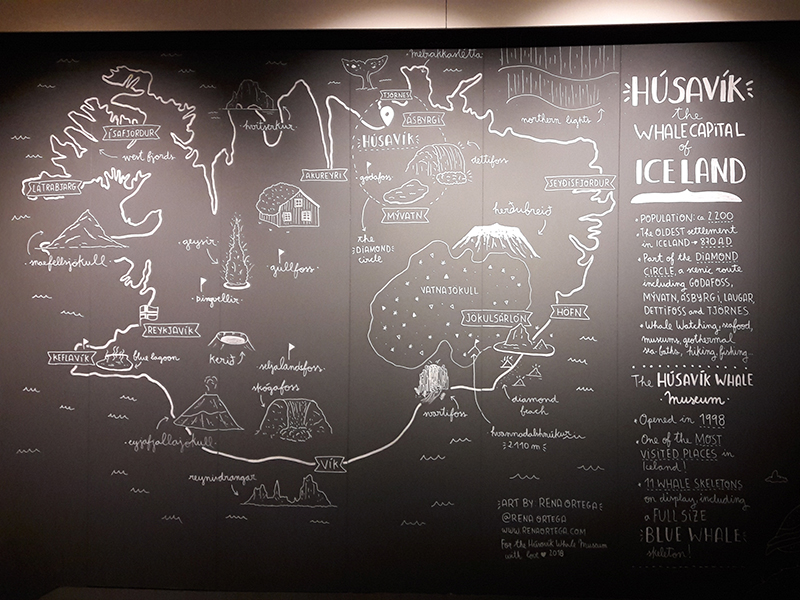 melrakkaslétta
TJÖRNES
ÁSBYRGI
HÚSAVÍK
northern lights
ÍSAFJÖRÐUR
west fjords
hvítserkur
LÁTRABJARG
AKUREYRI
godafoss
dettifoss
SEYÐISFJÖRÐUR
MÝVATN
the
DIAMOND
circle
herðubreið
snæfellsjökull
geysir
gullfoss
þingvellir
VATNAJÖKULL
JÖKULSÁRLÓN
HÖFN
REYKJAVÍK
KEFLAVÍK
blue lagoon
kerið
seljalandsfoss
skógafoss
svartifoss
diamond
beach
hvannadalshnúkur
2.110 m
eyjafjallajökull
VÍK
reynisdrangar
ART BY RENA ORTEGA
@RENA ORTEGA
WWW.RENAORTEGA.COM
For the Húsavík Whale Museum
with love ♥ 2018
HÚSAVÍK
the
WHALE CAPITAL
of
ICELAND
• POPULATION: ca 2.200
• The OLDEST settlement
in ICELAND → 870 A.D
• Part of the DIAMOND
CIRCLE, a scenic route
including GODAFOSS,
MÝVATN, ÁSBYRGI, LAUGAR,
DETTIFOSS and TJÖRNES
• Whale Watching, seafood,
museums, geothermal
sea baths, hiking, fishing...
The HÚSAVÍK WHALE
Museum
• Opened in 1998
• One of the MOST
VISITED PLACES in
Iceland!
• 11 WHALE SKELETONS
on display, including
a FULL SIZE
BLUE WHALE
skeleton!